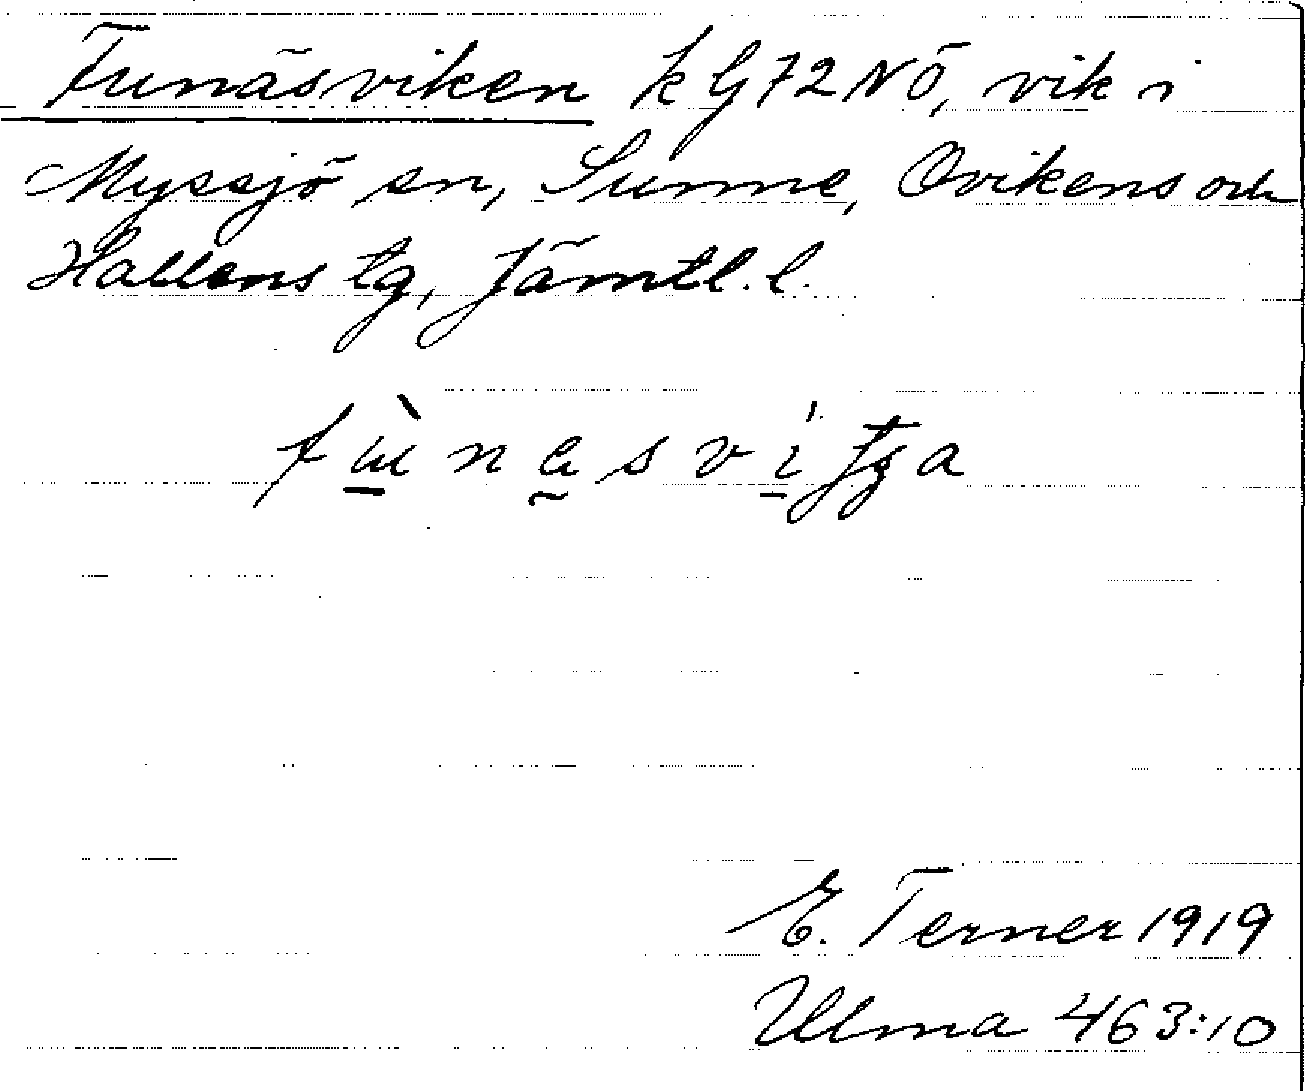 Funäsviken k G72NÖ, vik i
Myssjö sn, Sunne, Ovikens och
Hallens tg, Jämtl. l.
E. Terner 1919
Ulma 463:10